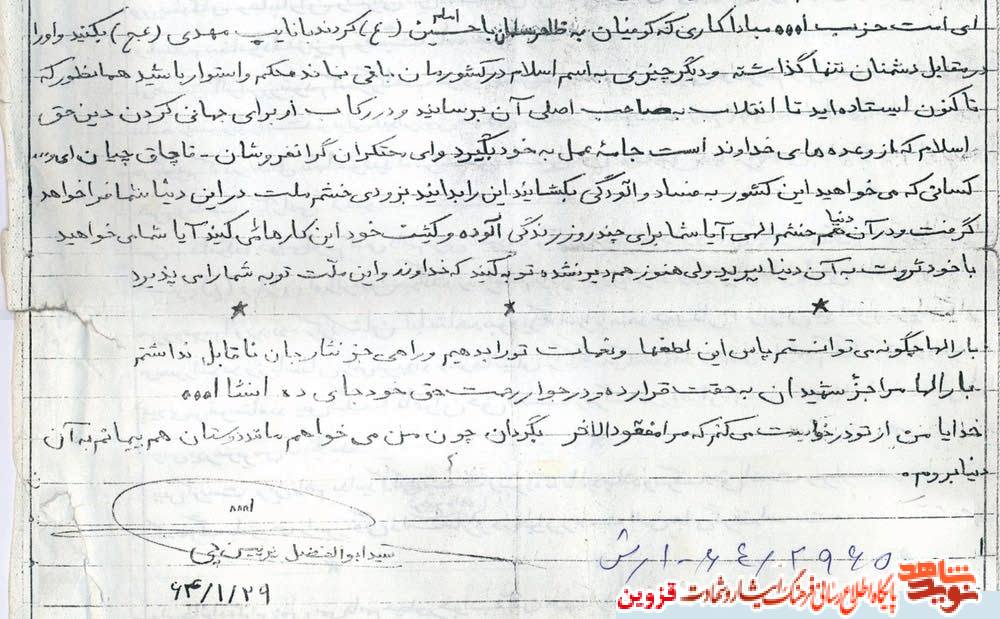 ای است حزب ا... مبادا کاری که کوفیان به ظاهر مسلمان با امام حسین (ع) کردند با نایب مهدی (عج) بکنید و او را
در مقابل دشمنان تنها گذاشته و دیگر چیزی به اسم اسلام در کشورمان باقی نماند محکم و استوار باشید همانطور که
تا کنون ایستاده اید تا انقلاب به صاحب اصلی آن برسانید و در رکاب او برای جهانی کردن دین حق
اسلام که از وعده های خداوند است جامهٔ عمل به خود بگیرد وای محتکران گرانفروشان - قاچاق چیان ای و...
کسانی که می خواهید این کشور به فساد و آلودگی بکشانید این را بدانید بزودی خشم ملت در این دنیا شما فرا خواهد
گرفت و در آن دنیا هم خشم الهی آیا شما برای چند روز زندگی آلوده و کثیف خود این کارها می کنید آیا شما می خواهید
با خود ثروت به آن دنیا ببرید ولی هنوز هم دیر نشده توبه کنید که خداوند و این ملت توبه شما را می پذیرد
بارالها چگونه می توانستم پاس این لطفها و نعمات تو را بدهیم و راهی جز نثار جان ناقابل نداشتم
بارالها مرا جزءُ شهیدان به حقت قرار ده و در جوار رحمت حق خود جای ده انشاا...
خدایا من از تو درخواست می کنم که مرا مفقودالاثر بگردان چون من می خواهم مانند دوستان هم پیمانم به آن
دنیا بروم.
ا...
سید ابوالفضل
۶۴/۱/۲۹
۲۹۶۵ / ۶۴ - ۱رش
نوید شاهد
پایگاه اطلاع رسانی فرهنگ ایثار و شهادت قزوین